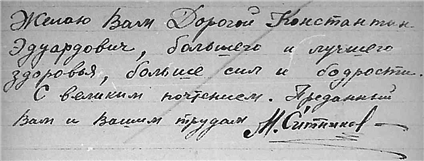 Желаю Вам Дорогой Константин
Эдуардович, большего и лучшего
здоровья, больше сил и бодрости.
С великим почтением. Преданный
Вам и Вашим трудам М. Ситников